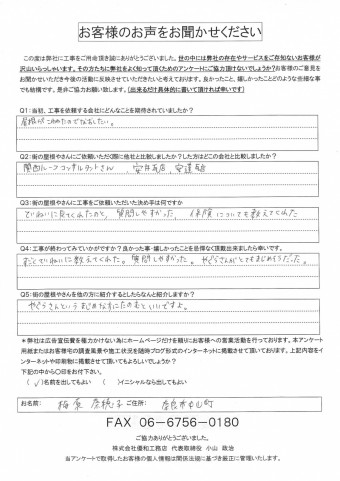 お客様のお声をお聞かせください
この度は弊社に工事をご用命頂き誠にありがとうございました。世の中には弊社の存在やサービスをご存知ないお客様が
沢山いらっしゃいます。その方たちに弊社をよく知って頂くためのアンケートにご協力頂けないでしょうか？お客様のご意見を
お聞かせいただき今後の活動に反映させていただきたいと考えております。良かったこと、嬉しかったことどのような些細な事
でも結構です。是非ご協力お願い致します。（出来るだけ具体的に書いて頂ければ幸いです）
Q1：当初、工事を依頼する会社にどんなことを期待されていましたか？
屋根が
なおしたい。
Q2：街の屋根やさんにご依頼いただく際に他社と比較しましたか？した方はどこの会社と比較しましたか？
関西ルーフコンサルタントさん
Q3：街の屋根やさんにご依頼いただいた決め手は何ですか
ていねいに見てくれたのと、質問しやすかった、保険についても教えてくれた
Q4：工事が終わってみていかがですか？良かった事・嬉しかったことを忌憚なくご頂戴出来ましたら幸いです。
ていねいに教えてくれた。質問しやすかった。
Q5：街の屋根やさんを他の方に紹介するとしたらなんと紹介しますか？
＊弊社は広告宣伝費を極力かけない為にホームページだけを頼りにお客様への営業活動を行っております。本アンケート
用紙またはお客様宅の調査風景や施工状況を随時ブログ形式のインターネットに掲載させて頂いております。上記内容をイ
ンターネットや印刷物に掲載させて頂いてもよろしいでしょうか？
下記の中から〇印をお付下さい。
（✓）名前を出してもよい　（　）イニシャルなら出してもよい
お名前：
ご住所：
FAX　06-6756-0180
ご協力ありがとうございました。
株式会社優和工務店　代表取締役　小山　政治
当アンケートで取得したお客様の個人情報は関係法規に基づき厳正に管理いたします。